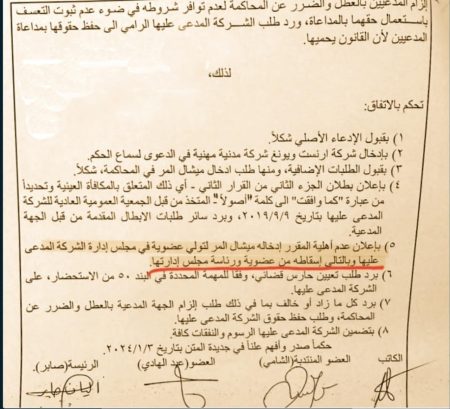 إلزام المدعيين بالعطل والضرر عن المحاكمة لعدم توافر شروطه في ضوء عدم ثبوت التعسف
باستعمال حقهما بالمداعاة، ورد طلب الشركة المدعى عليها الرامي الى حفظ حقوقها بمداعاة
المدعيين لأن القانون يحميها.
لذلك،
تحكم بالاتفاق:
١) بقبول الإدعاء الأصلي شكلاً.
٢) بإدخال شركة ارنست ويونغ شركة مدنية مهنية في الدعوى لسماع الحكم.
٣) بقبول الطلبات الإضافية، ومنها طلب ادخال ميشال المر في المحاكمة، شكلاً.
٤) بإعلان بطلان الجزء الثاني من القرار الثاني - أي ذلك المتعلق بالمكافأة العينية وتحديداً
من عبارة "كما وافقت" الى كلمة "أصولاً" المتخذ من قبل الجمعية العمومية العادية للشركة
المدعى عليها بتاريخ ٢٠١٩/٩/٩، وبرد سائر طلبات الابطال المقدمة من قبل الجهة
المدعية.
٥) بإعلان عدم أهلية المقرر إدخاله ميشال المر لتولي عضوية في مجلس إدارة الشركة المدعى
عليها وبالتالي إسقاطه من عضوية ورئاسة مجلس إدارتها.
٦) برد طلب تعيين حارس قضائي، وفقاً للمهمة المحددة في البند ٥٠ من الاستحضار، على
الشركة المدعى عليها.
٧) برد كل ما زاد أو خالف بما في ذلك طلب إلزام الجهة المدعية بالعطل والضرر عن
المحاكمة، وطلب حفظ حقوق الشركة المدعى عليها.
٨) بتضمين الشركة المدعى عليها الرسوم والنفقات كافة.
حكماً صدر وأفهم علناً في جديدة المتن بتاريخ ٢٠٢٤/١/٣.
الكاتب العضو المنتدبة(الشامي) العضو(عبد الهادي) الرئيسة(صابر).